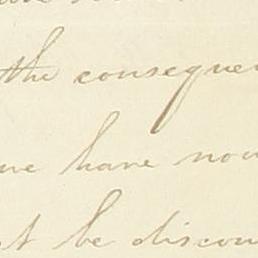 the consequen
we have now
t be discou